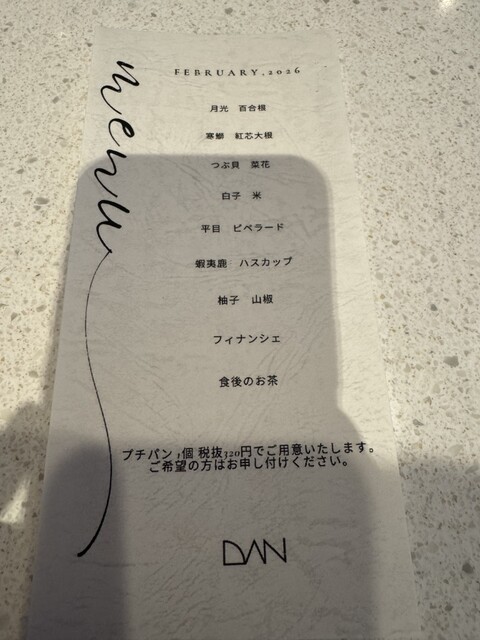 menu
FEBRUARY, 2026
月光 百合根
寒鰤 紅芯大根
つぶ貝 菜花
白子 米
平目 ピペラード
蝦夷鹿 ハスカップ
柚子 山椒
フィナンシェ
食後のお茶
プチパン 1個 税抜320円でご用意いたします。
ご希望の方はお申し付けください。
DAN